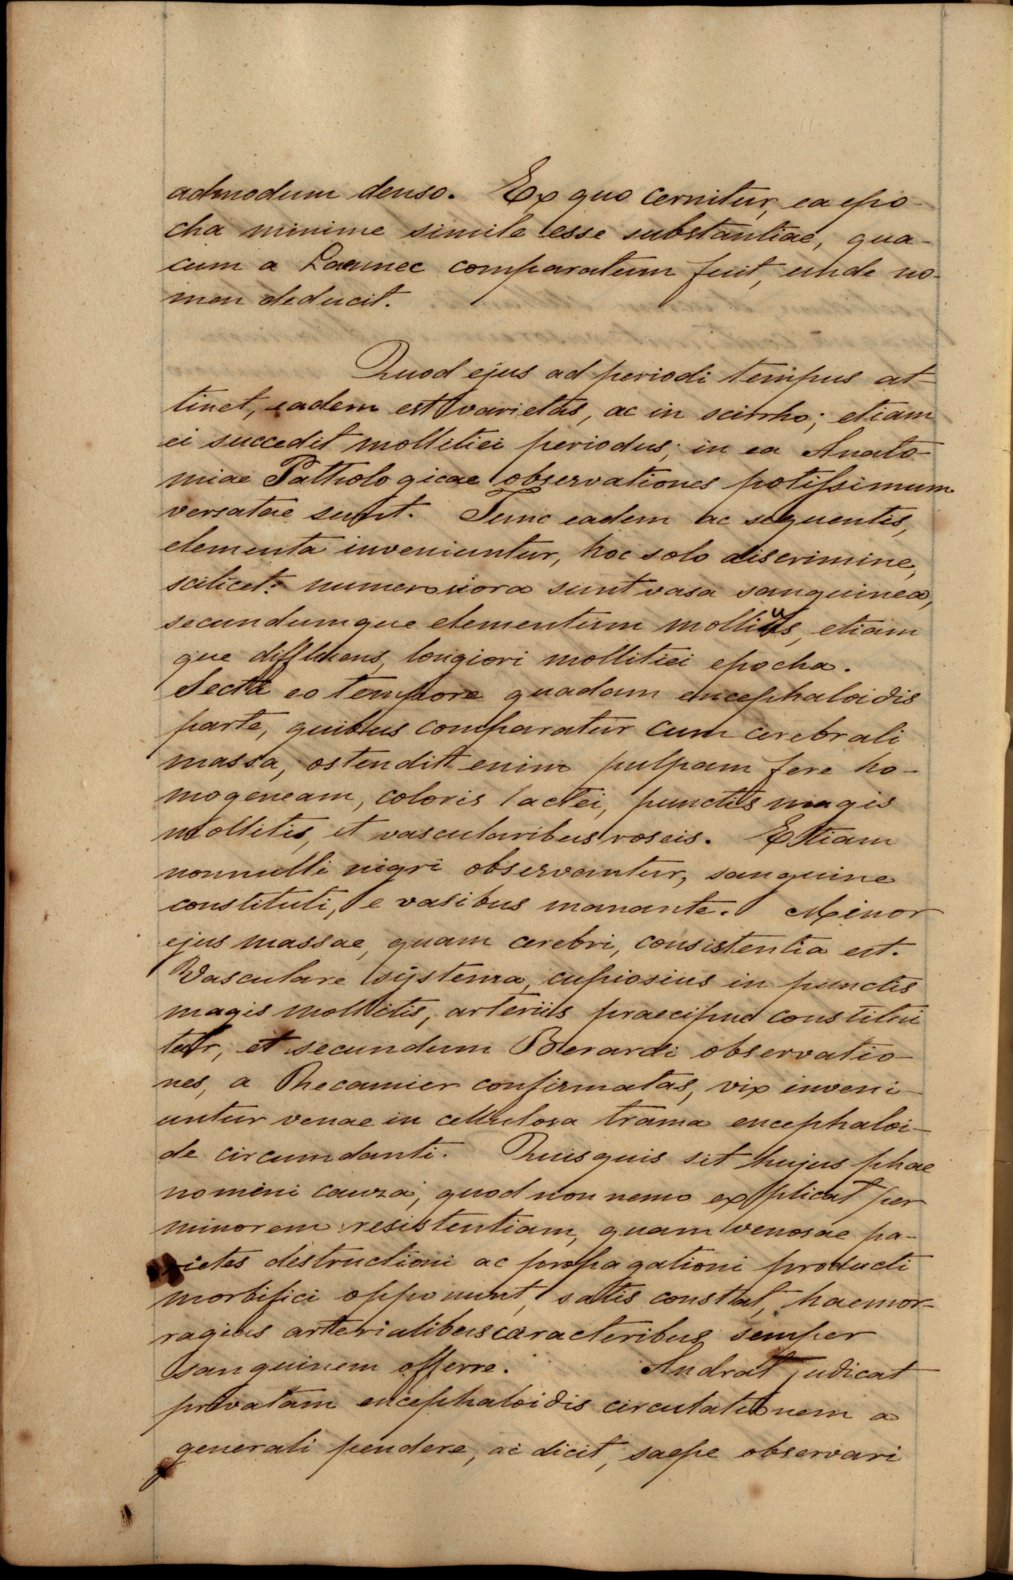 admodum denso. Ex quo cernitur, ea epo-
cha minime simile esse substantiae, qua-
cum a Laennec comparatum fuit, unde no-
men deducit.
Quod ejus ad periodi tempus at-
tinet, eadem est varietas, ac in scirrho; etiam
ei succedit mollitiei periodus; in ea Anato-
miae Pathologicae observationes potissimum
versatae sunt. Tunc eadem ac sequentis,
elementa inveniuntur, hoc solo discrimine,
scilicet: numerosiora sunt vasa sanguinea,
secundumque elementum mollius, etiam
que diffluens, longiori mollitiei epocha.
Secta eo tempore quadam encephaloidis
parte, quibus comparatur cum cerebrali
massa, ostendit enim pulpam fere ho-
mogeneam, coloris lactei, punctis magis
mollitis, et vascularibus roseis. Etiam
nonnulli nigri observantur, sanguine
constituti, e vasibus manante. Minor
ejus massae, quam cerebri, consistentia est.
Vasculare systema, cupiosius in punctis
magis mollitis, arteriis praecipue constitui
tur, et secundum Berardi observatio-
nes, a Recamier confirmatas, vix inveni-
untur venae in cellulosa trama encephaloi-
de circumdanti. Quisquis sit hujus phae
nomeni causa, quod non nemo explicat per
minorem resistentiam, quam venosae pa-
rietes destructioni ac propagationi producti
morbifici opponunt, satis constat, haemor-
ragias arterialibus caracteribus semper
sanguinem offerre. Andrat judicat
privatam encephaloidis circulationem a
generali pendere, ac dicit, saepe observari